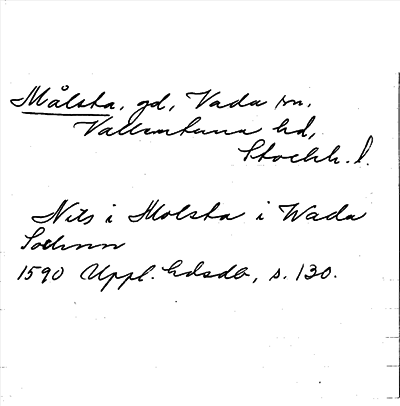 Målsta, gd, Vada sn.
Vallentuna hd,
Stockh. l.
Nils i Molsta i Wada
Sochnn
1590 Uppl. hdsdb, s. 130.